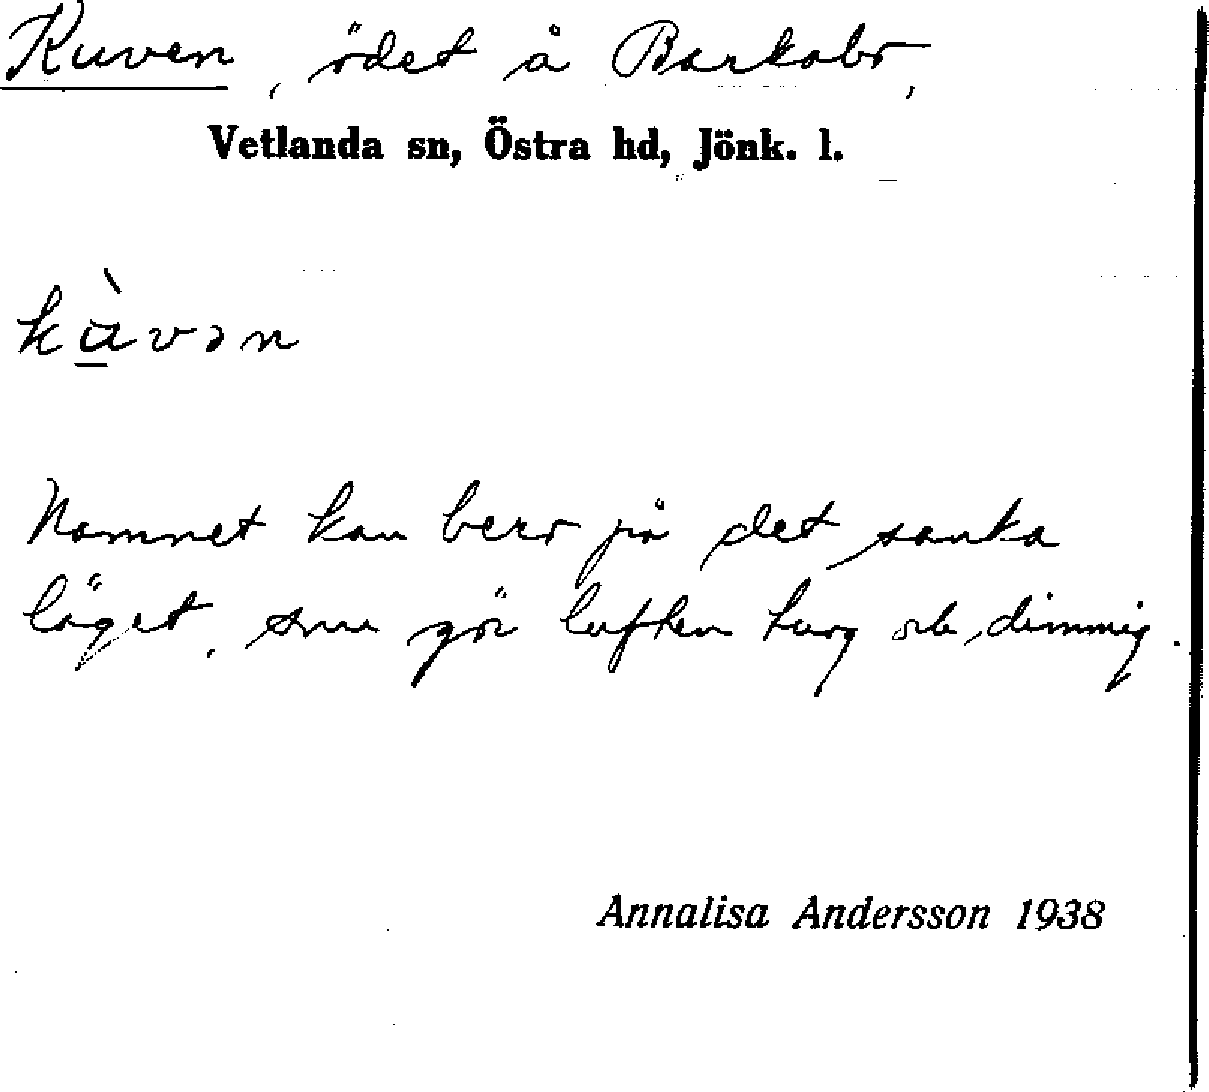 Kuven, ödet å Barkabo,
Vetlanda sn, Östra hd, Jönk. l.
kùvən
Namnet kan bero på det sanka
läget, som gör luften tung och dimmig.
Annalisa Andersson 1938